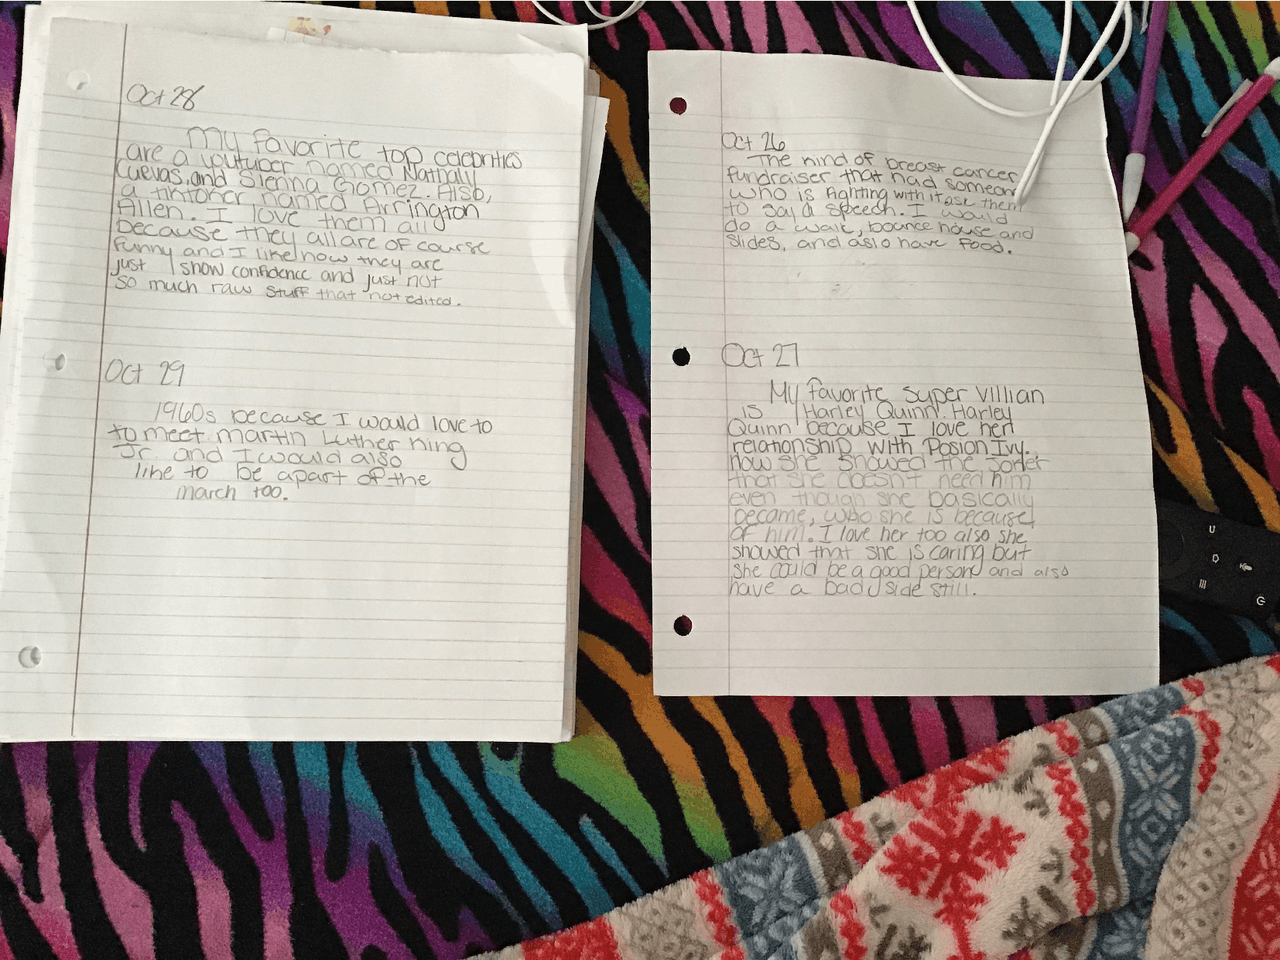 Oct 28
My favorite top celebrities
are a youtuber named Nathaly
Cuevas, and Sienna Gomez. Also,
a tiktoner named Arrington
Allen. I love them all
because they all are of course
funny and I like how they are
just show confidence and just not
so much raw stuff that not edited.
Oct 29
1960s because I would love to
to meet martin Luther King
Jr. and I would also
like to be apart of the
march too.
Oct 26
The kind of breast cancer
fundraiser that had someone
who is fighting with it ask them
to say a speech. I would
do a walk, bounce house and
slides, and aslo have food.
Oct 27
My favorite super villian
is Harley Quinn. Harley
Quinn because I love her
relationship with Posion Ivy.
How she showed the
that she doesn't need him
even though she basically
became, who she is because
of him. I love her too also she
showed that she is caring but
she could be a good person and also
have a bad side still.